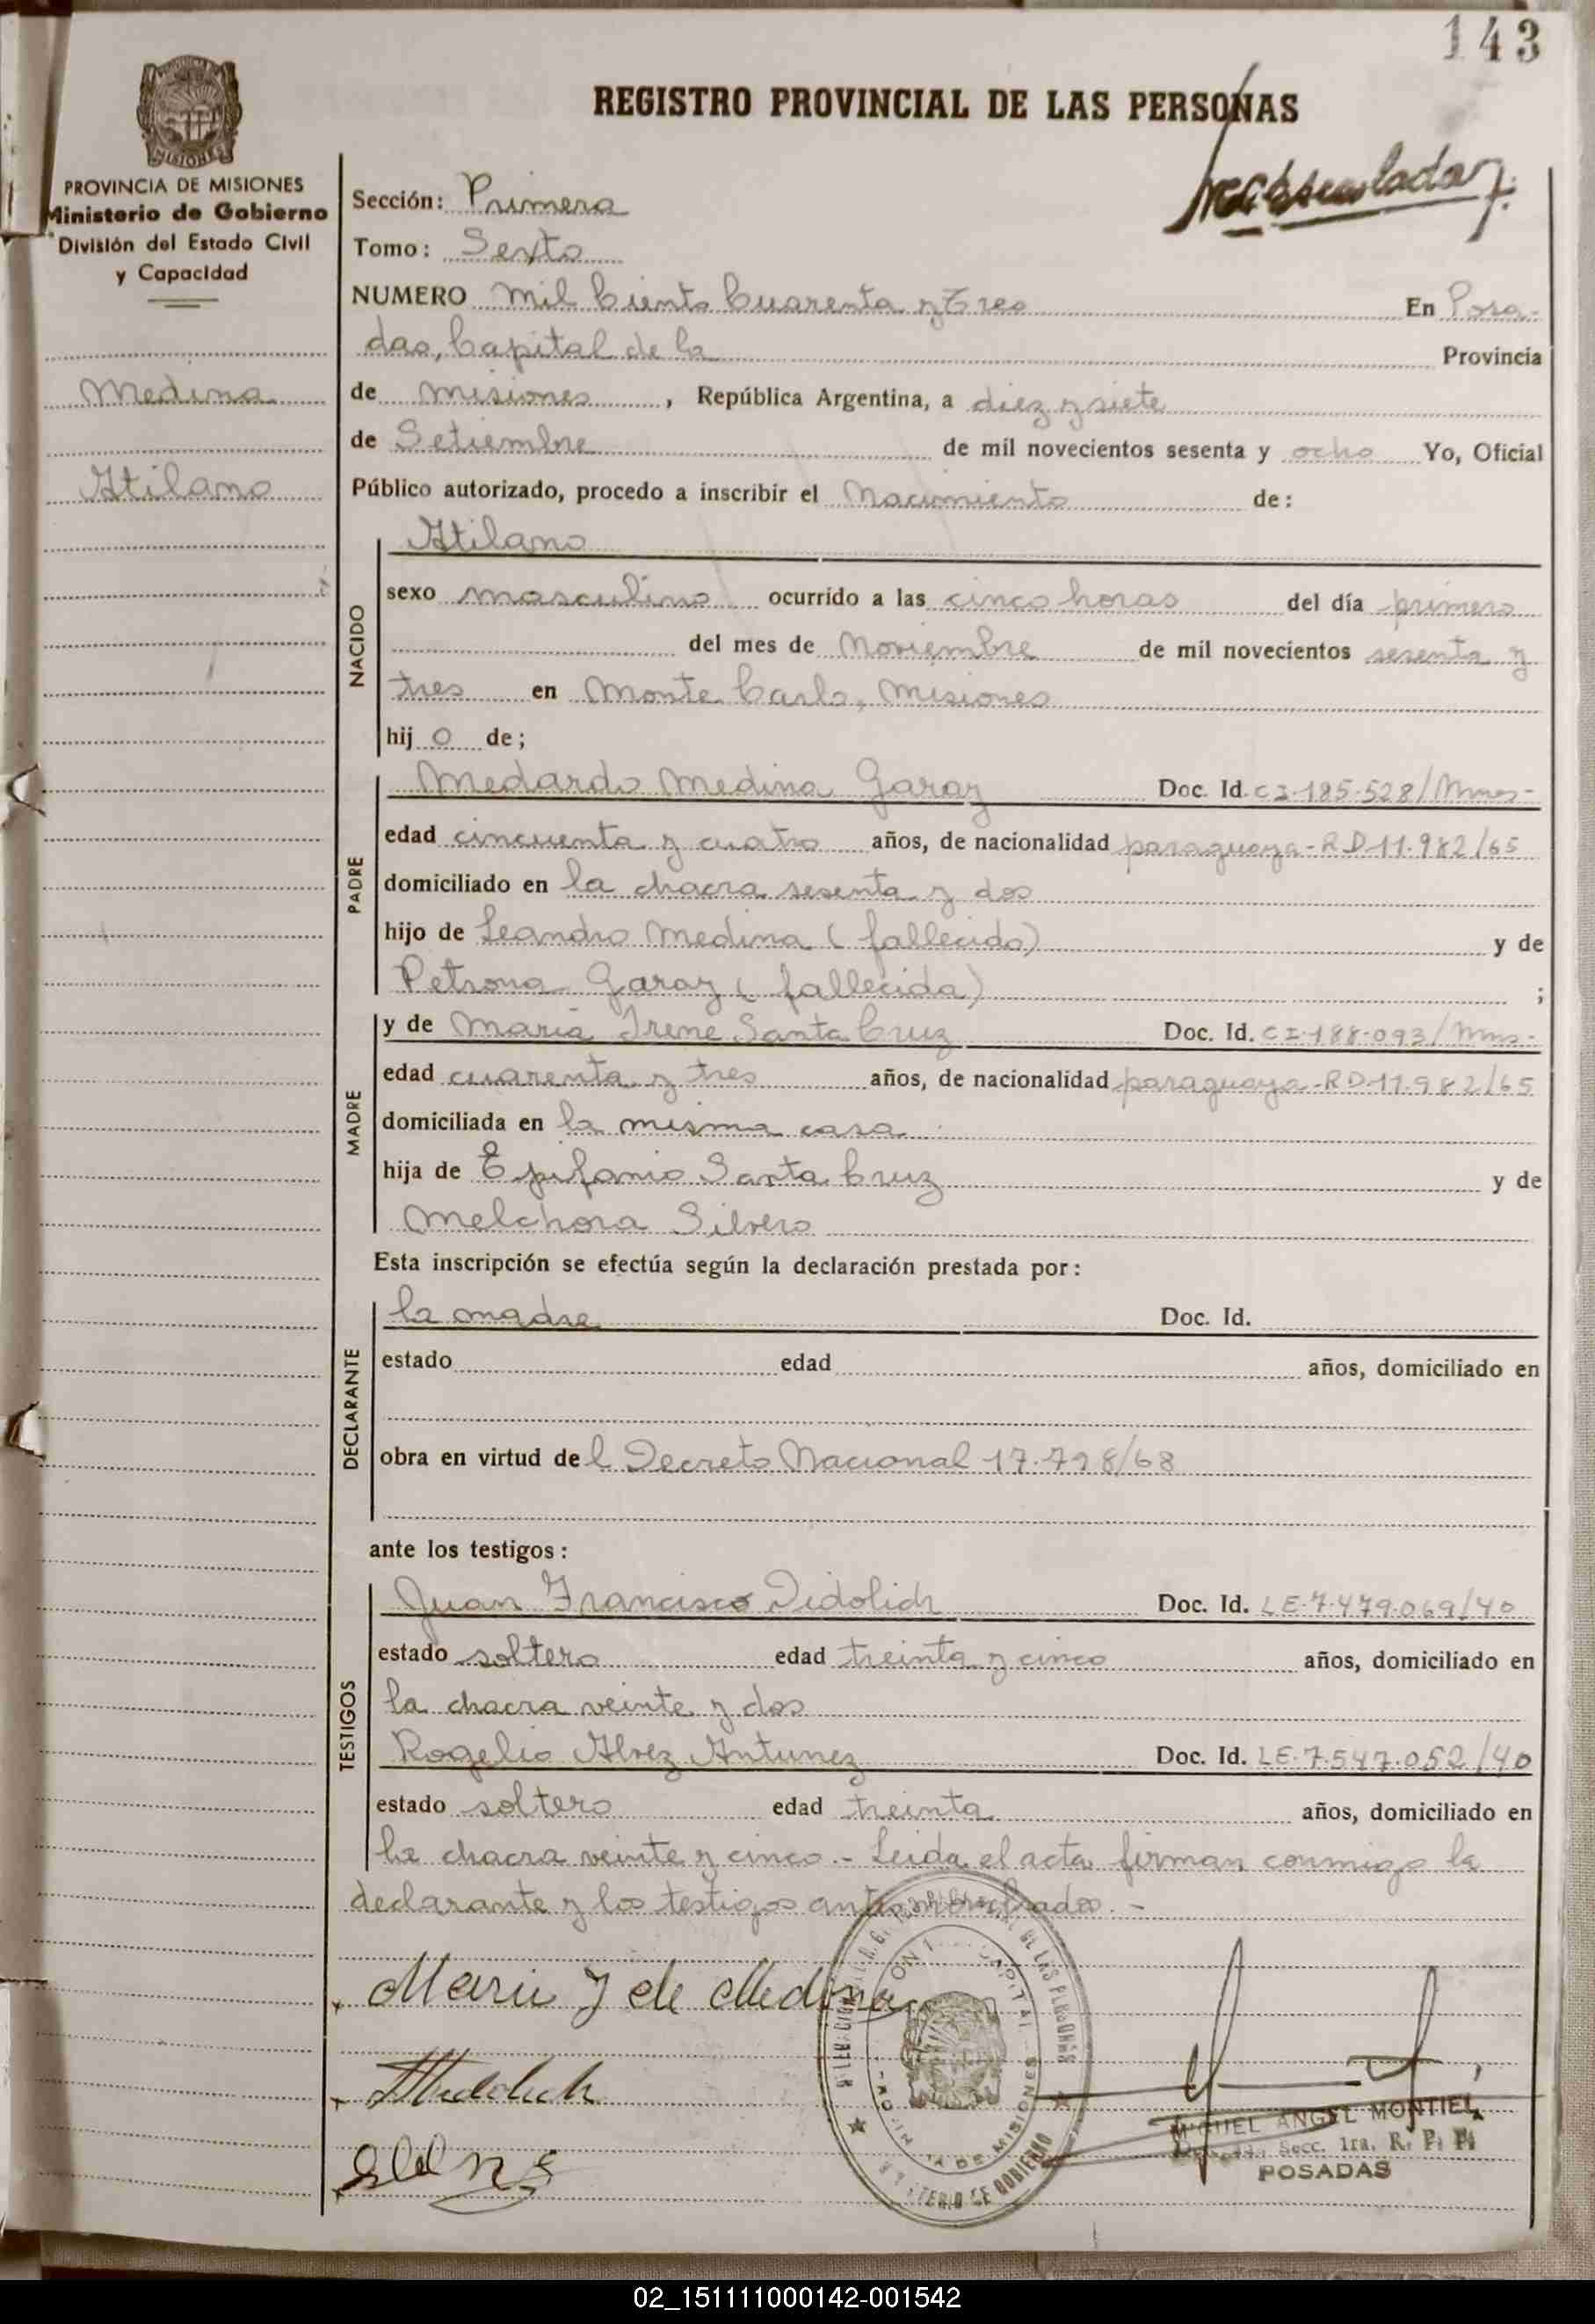 143
REGISTRO PROVINCIAL DE LAS PERSONAS
MISIONES
PROVINCIA DE MISIONES
Ministerio de Gobierno
División del Estado Civil
y Capacidad
Medina
Atilano
Sección: Primera
Tomo: Sexto
NUMERO Mil Ciento Cuarenta y Tres En Posa-
das, Capital de la Provincia
de Misiones, República Argentina, a diez y siete
de Setiembre de mil novecientos sesenta y ocho Yo, Oficial
Público autorizado, procedo a inscribir el Nacimiento de:
NACIDO
Atilano
sexo masculino ocurrido a las cinco horas del día primero
del mes de Noviembre de mil novecientos sesenta y
tres en Monte Carlo, Misiones
hij o de;
PADRE
Medardo Medina Garay Doc. Id. CI-185.528/Mnes-
edad cincuenta y cuatro años, de nacionalidad paraguaya-RD11.982/65
domiciliado en la chacra sesenta y dos
hijo de Leandro Medina (fallecido) y de
Petrona Garay (fallecida) ;
MADRE
y de María Irene Santa Cruz Doc. Id. CI-188.093/Mnes-
edad cuarenta y tres años, de nacionalidad paraguaya-RD-11.982/65
domiciliada en la misma casa
hija de Epifanio Santa Cruz y de
Melchora Silvero
Esta inscripción se efectúa según la declaración prestada por:
DECLARANTE
la madre Doc. Id.
estado edad años, domiciliado en
obra en virtud de l Decreto Nacional 17.798/68
ante los testigos:
TESTIGOS
Juan Francisco Didolich Doc. Id. LE-7.479.069/40
estado soltero edad treinta y cinco años, domiciliado en
la chacra veinte y dos
Rogelio Alvez Antunez Doc. Id. LE-7.547.052/40
estado soltero edad treinta años, domiciliado en
la chacra veinte y cinco.- Leida el acta firman conmigo la
declarante y los testigos antenombrados.-
Maria Y de Medina
MIGUEL ANGEL MONTIEL
Secc. 1ra. R. P. P.
POSADAS
02_151111000142-001542